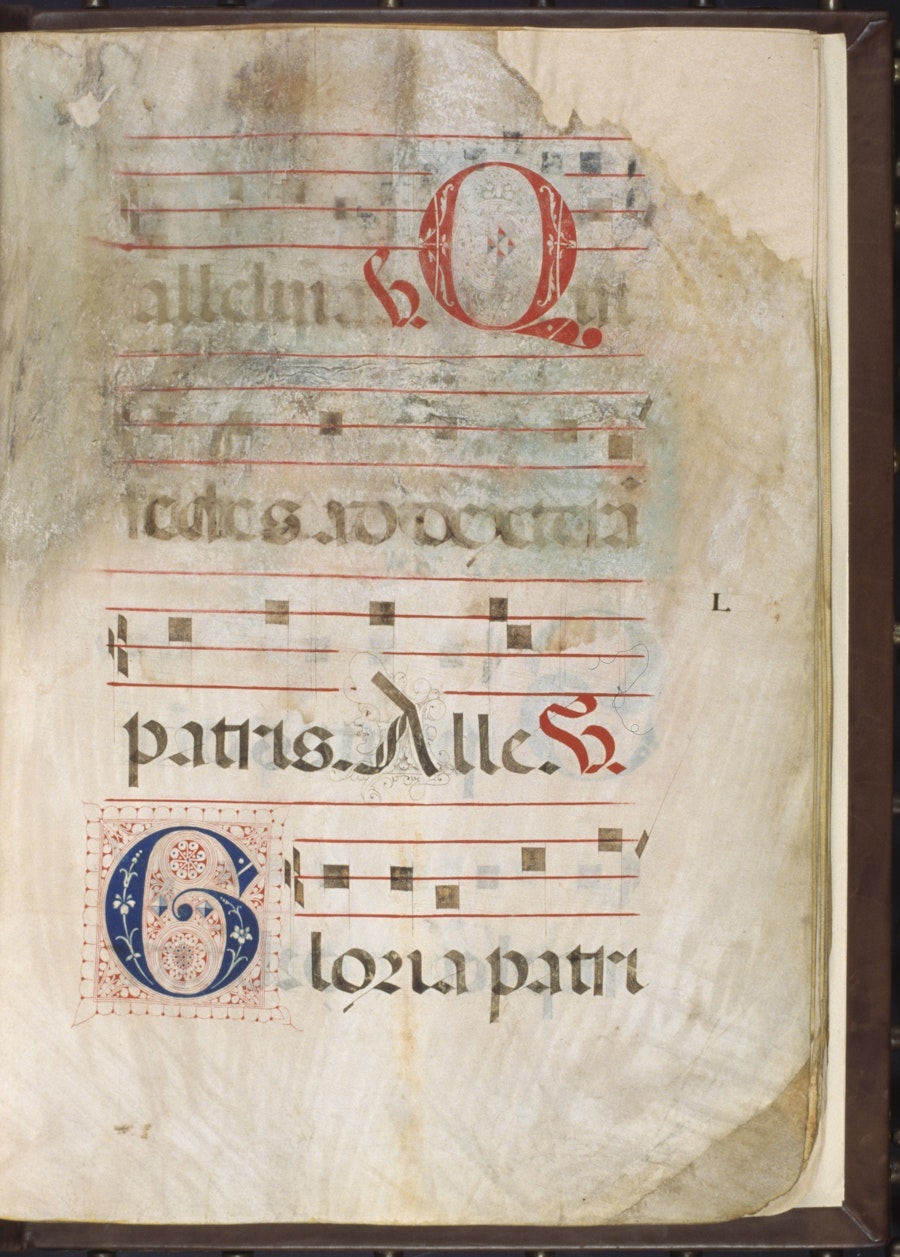 alleluia. V. Qui
sedes ad dexterā
L.
patris. Alle. V.
Gloria patri